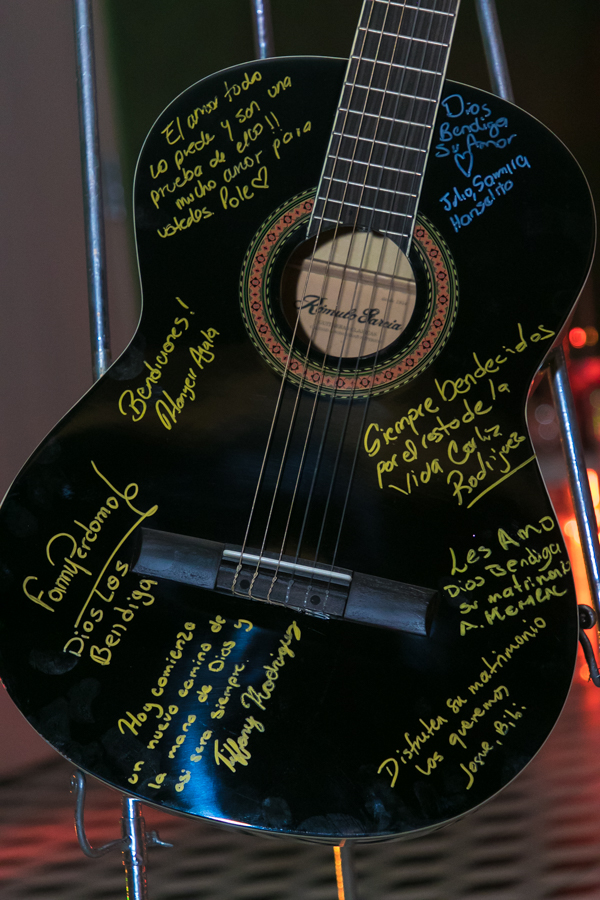 El amor todo
lo puede y son una
prueba de eso!!
mucho amor para
ustedes. Pole♡
Dios
Bendiga
Su Amor
♡
Julio, Samira
Hanselito
Rómulo García
Bendiciones!
Siempre bendecidos
por el resto de la
Vida Corliz
Rodríguez
Fanny Perdomo
Dios Los
Bendiga
Les Amo
Dios Bendiga
su matrimonio
Hoy comienza
un nuevo camino de
la mano de Dios y
así será siempre.
Tiffany Rodriguez
Disfruten su matrimonio
Los queremos
Jose, Bibi.